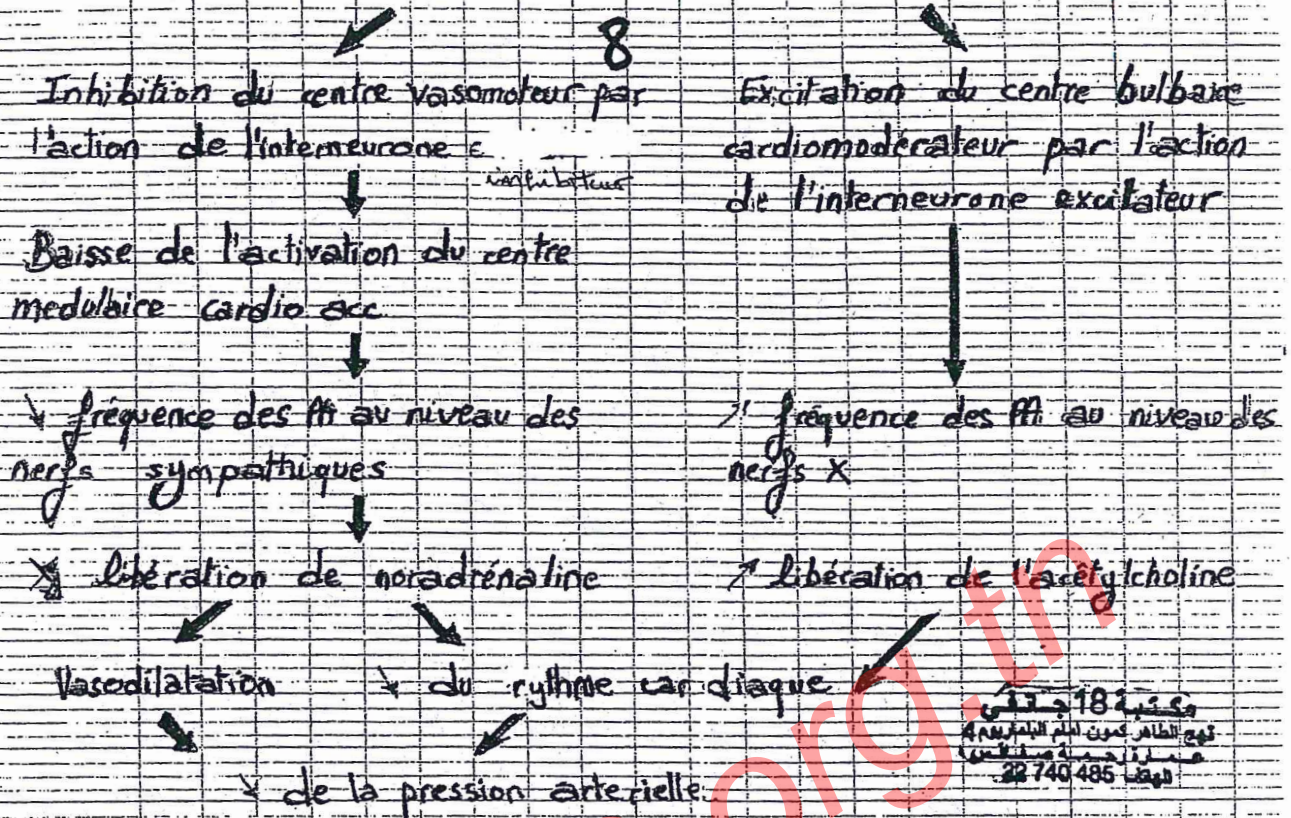 8
Inhibition du centre vasomoteur par
l'action de l'interneurone
inhibiteur
Baisse de l'activation du centre
medulaire cardio acc
↘ fréquence des PA au niveau des
nerfs sympathiques
↘ libération de noradrénaline
Vasodilatation
↘ du rythme cardiaque
Excitation du centre bulbaire
cardiomodérateur par l'action
de l'interneurone excitateur
↗ fréquence des PA au niveau des
nerfs X
↗ libération de l'acétylcholine
↘ de la pression arterielle.
org.tn
مكتبة 18 جانفي
نهج الطاهر كمون امام
22 740 485 الهاتف